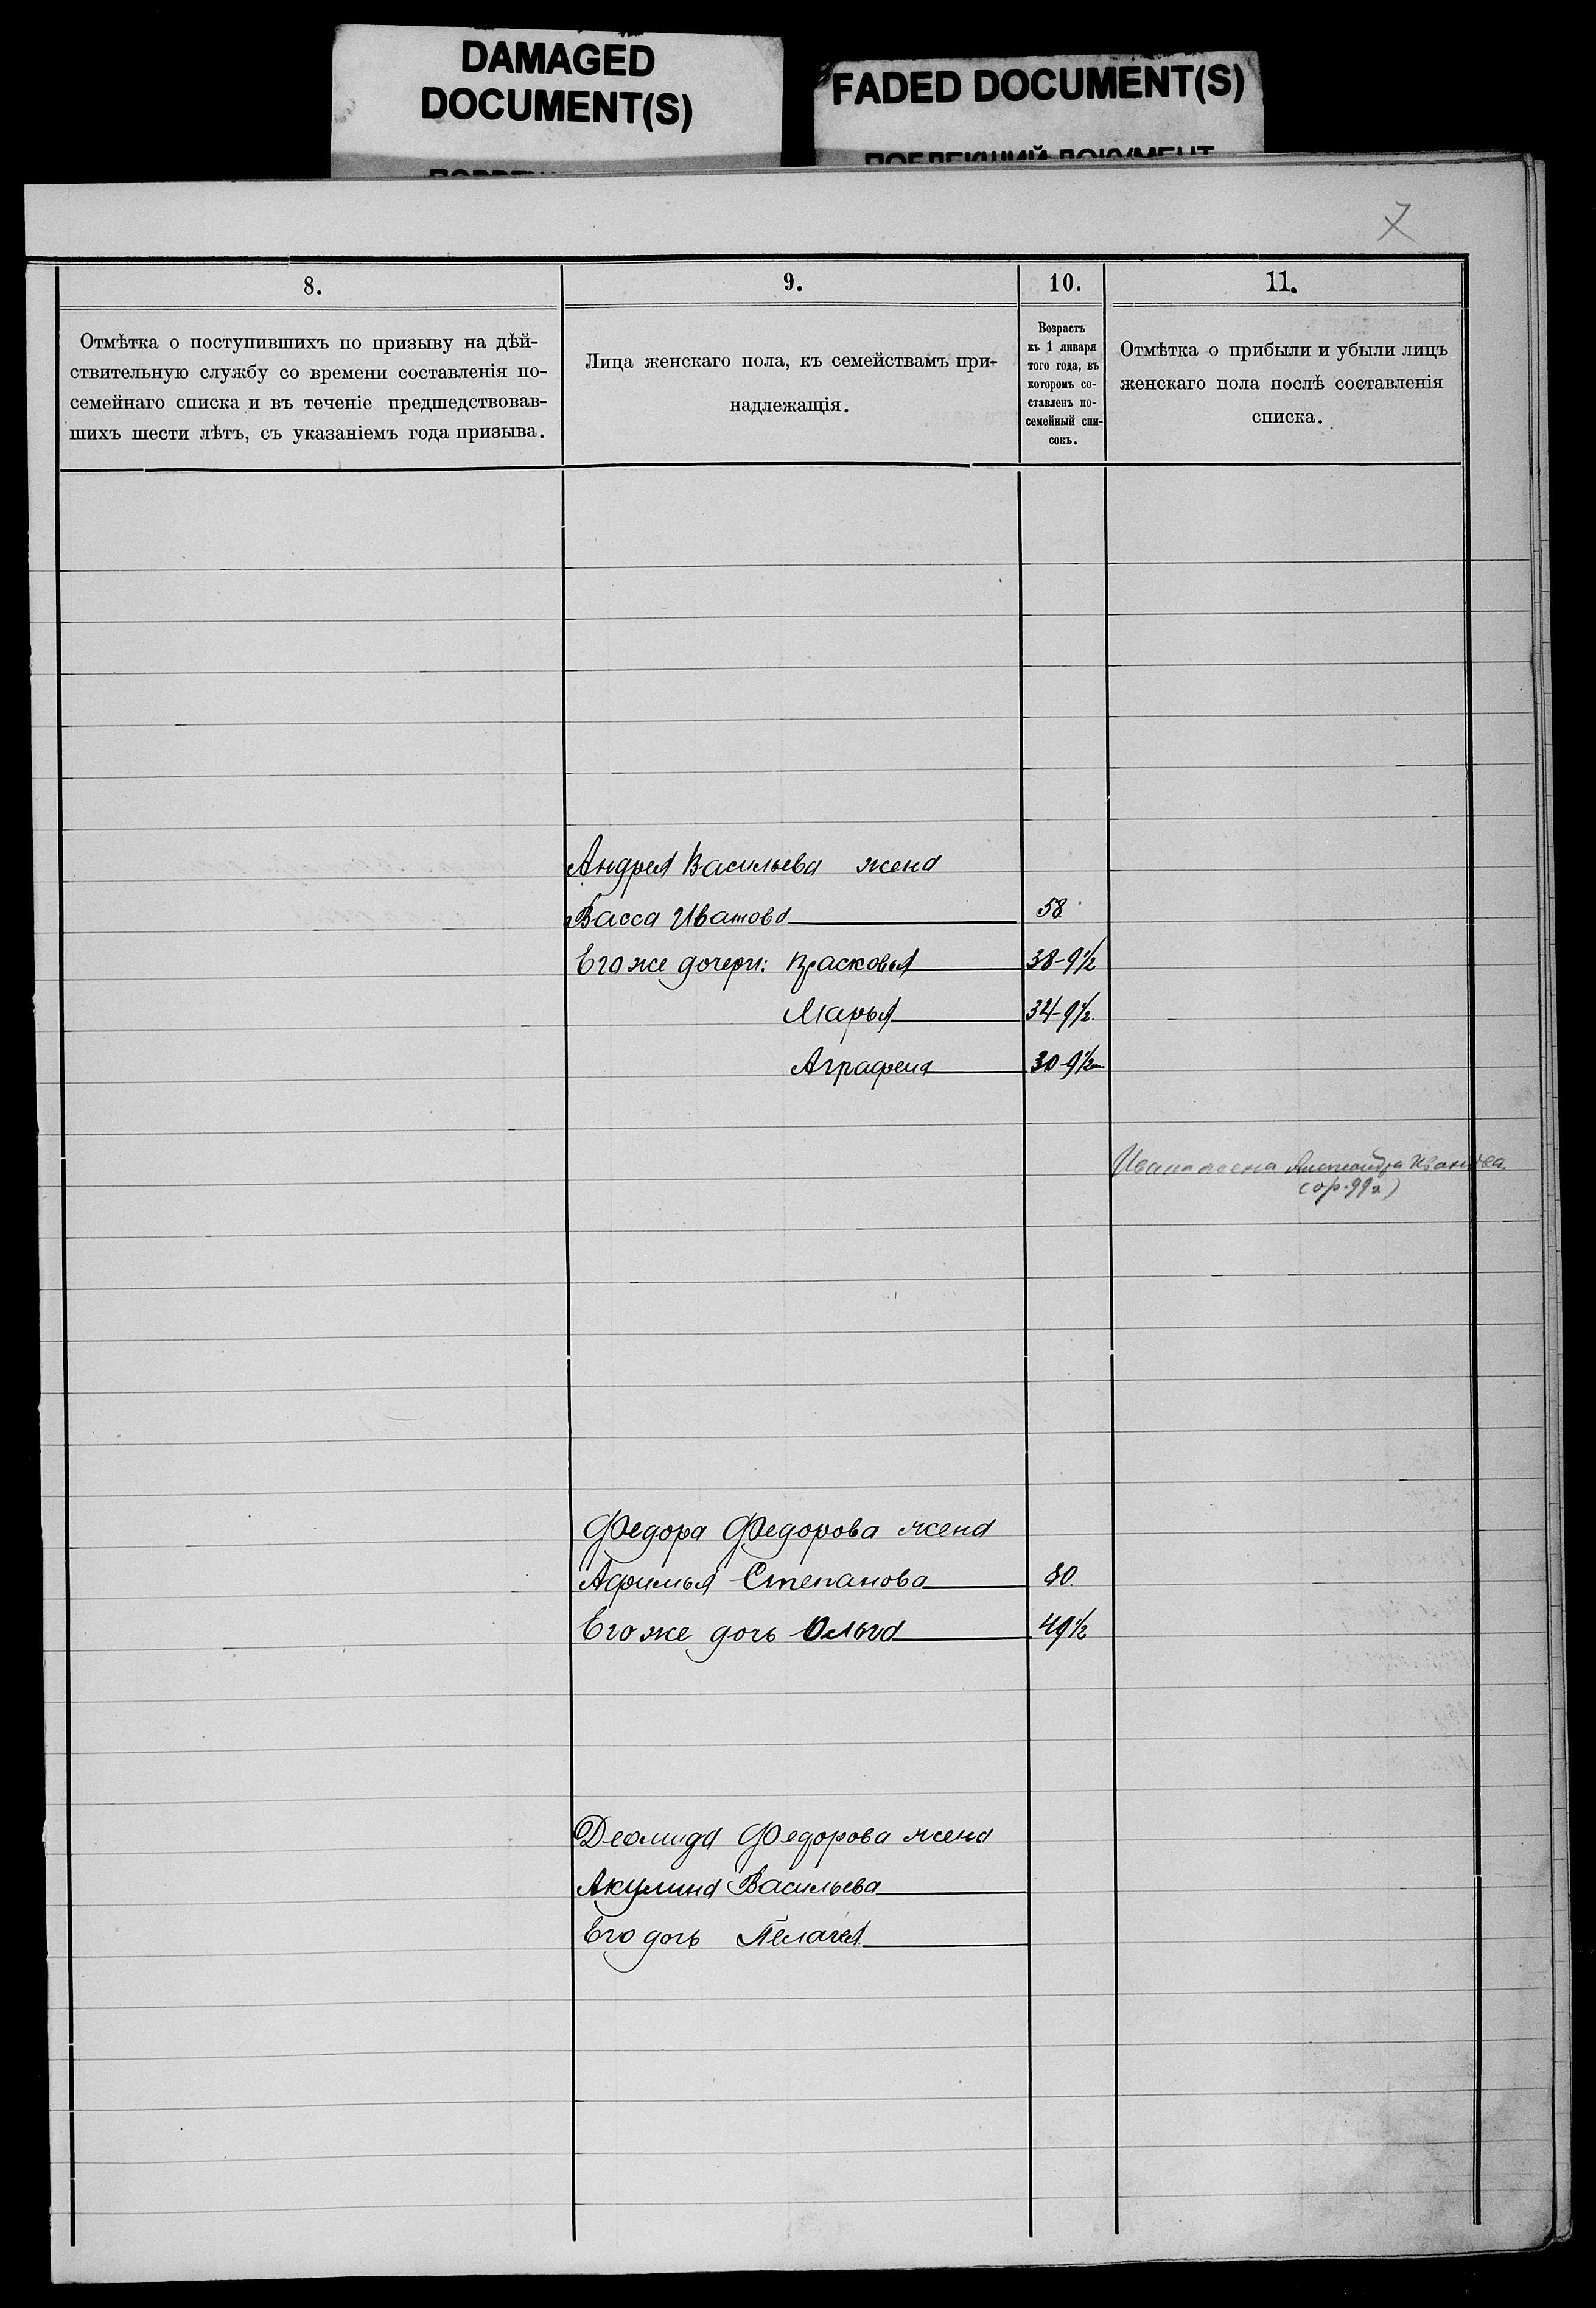 DAMAGED
DOCUMENT(S)
FADED DOCUMENT(S)
ПОБЛЕКШИЙ ДОКУМЕНТ
7
8.
9.
10.
11.
Отмѣтка о поступившихъ по призыву на дѣй-
ствительную службу со времени составленія по-
семейнаго списка и въ теченіе предшедствовав-
шихъ шести лѣтъ, съ указаніемъ года призыва.
Лица женскаго пола, къ семействамъ при-
надлежащія.
Возрастъ
къ 1 января
того года, въ
которомъ со-
ставленъ по-
семейный спи-
сокъ.
Отмѣтка о прибыли и убыли лицъ
женскаго пола послѣ составленія
списка.
Андрея Васильева жена
Васса Иванова 58.
Его же дочери: Прасковья 38-9½
Марья 34-9½.
Аграфена 30-9½
Ивана жена Александра Иванова
Федора Федорова жена
Афимья Степанова 80.
Его же дочь Ольга 49½
Деомида Федорова жена
Акулина Васильева
Его дочь Пелагея